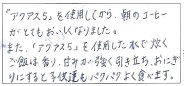 『アクアス5』を使用してから、朝のコーヒー
がとてもおいしくなりました。
また、「アクアス5」を使用した水で炊く
ご飯は香り、甘みが強く引き立ち、おにぎ
りにすると子供達もパクパクよく食べます。